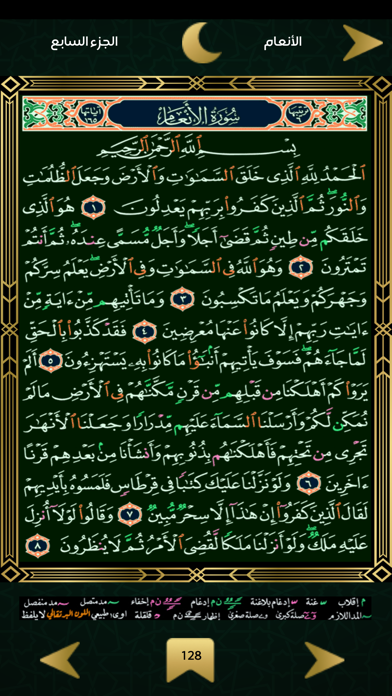 الأنعام
الجزء السابع
ترتيبها ٦
سُورَةُ الأَنْعَام
آياتها ١٦٥
بِسْمِ ٱللَّهِ ٱلرَّحْمَٰنِ ٱلرَّحِيمِ
ٱلْحَمْدُ لِلَّهِ ٱلَّذِى خَلَقَ ٱلسَّمَٰوَٰتِ وَٱلْأَرْضَ وَجَعَلَ ٱلظُّلُمَٰتِ
وَٱلنُّورَ ۖ ثُمَّ ٱلَّذِينَ كَفَرُوا۟ بِرَبِّهِمْ يَعْدِلُونَ ١ هُوَ ٱلَّذِى
خَلَقَكُم مِّن طِينٍ ثُمَّ قَضَىٰٓ أَجَلًا ۖ وَأَجَلٌ مُّسَمًّى عِندَهُۥ ۖ ثُمَّ أَنتُمْ
تَمْتَرُونَ ٢ وَهُوَ ٱللَّهُ فِى ٱلسَّمَٰوَٰتِ وَفِى ٱلْأَرْضِ ۖ يَعْلَمُ سِرَّكُمْ
وَجَهْرَكُمْ وَيَعْلَمُ مَا تَكْسِبُونَ ٣ وَمَا تَأْتِيهِم مِّنْ ءَايَةٍ مِّنْ
ءَايَٰتِ رَبِّهِمْ إِلَّا كَانُوا۟ عَنْهَا مُعْرِضِينَ ٤ فَقَدْ كَذَّبُوا۟ بِٱلْحَقِّ
لَمَّا جَآءَهُمْ ۖ فَسَوْفَ يَأْتِيهِمْ أَنۢبَٰٓؤُا۟ مَا كَانُوا۟ بِهِۦ يَسْتَهْزِءُونَ ٥ أَلَمْ
يَرَوْا۟ كَمْ أَهْلَكْنَا مِن قَبْلِهِم مِّن قَرْنٍ مَّكَّنَّٰهُمْ فِى ٱلْأَرْضِ مَا لَمْ
نُمَكِّن لَّكُمْ وَأَرْسَلْنَا ٱلسَّمَآءَ عَلَيْهِم مِّدْرَارًا وَجَعَلْنَا ٱلْأَنْهَٰرَ
تَجْرِى مِن تَحْتِهِمْ فَأَهْلَكْنَٰهُم بِذُنُوبِهِمْ وَأَنشَأْنَا مِنۢ بَعْدِهِمْ قَرْنًا
ءَاخَرِينَ ٦ وَلَوْ نَزَّلْنَا عَلَيْكَ كِتَٰبًا فِى قِرْطَاسٍ فَلَمَسُوهُ بِأَيْدِيهِمْ
لَقَالَ ٱلَّذِينَ كَفَرُوٓا۟ إِنْ هَٰذَآ إِلَّا سِحْرٌ مُّبِينٌ ٧ وَقَالُوا۟ لَوْلَآ أُنزِلَ
عَلَيْهِ مَلَكٌ ۖ وَلَوْ أَنزَلْنَا مَلَكًا لَّقُضِىَ ٱلْأَمْرُ ثُمَّ لَا يُنظَرُونَ ٨
م إقلاب غنة إدغام بلاغنة ن م إدغام ن م إخفاء مد متصل مد منفصل
المد اللازم صلة كبرى صلة صغرى إظهار ن م قلقلة اوى: طبيعي اللون البرتقالي لا يلفظ
128